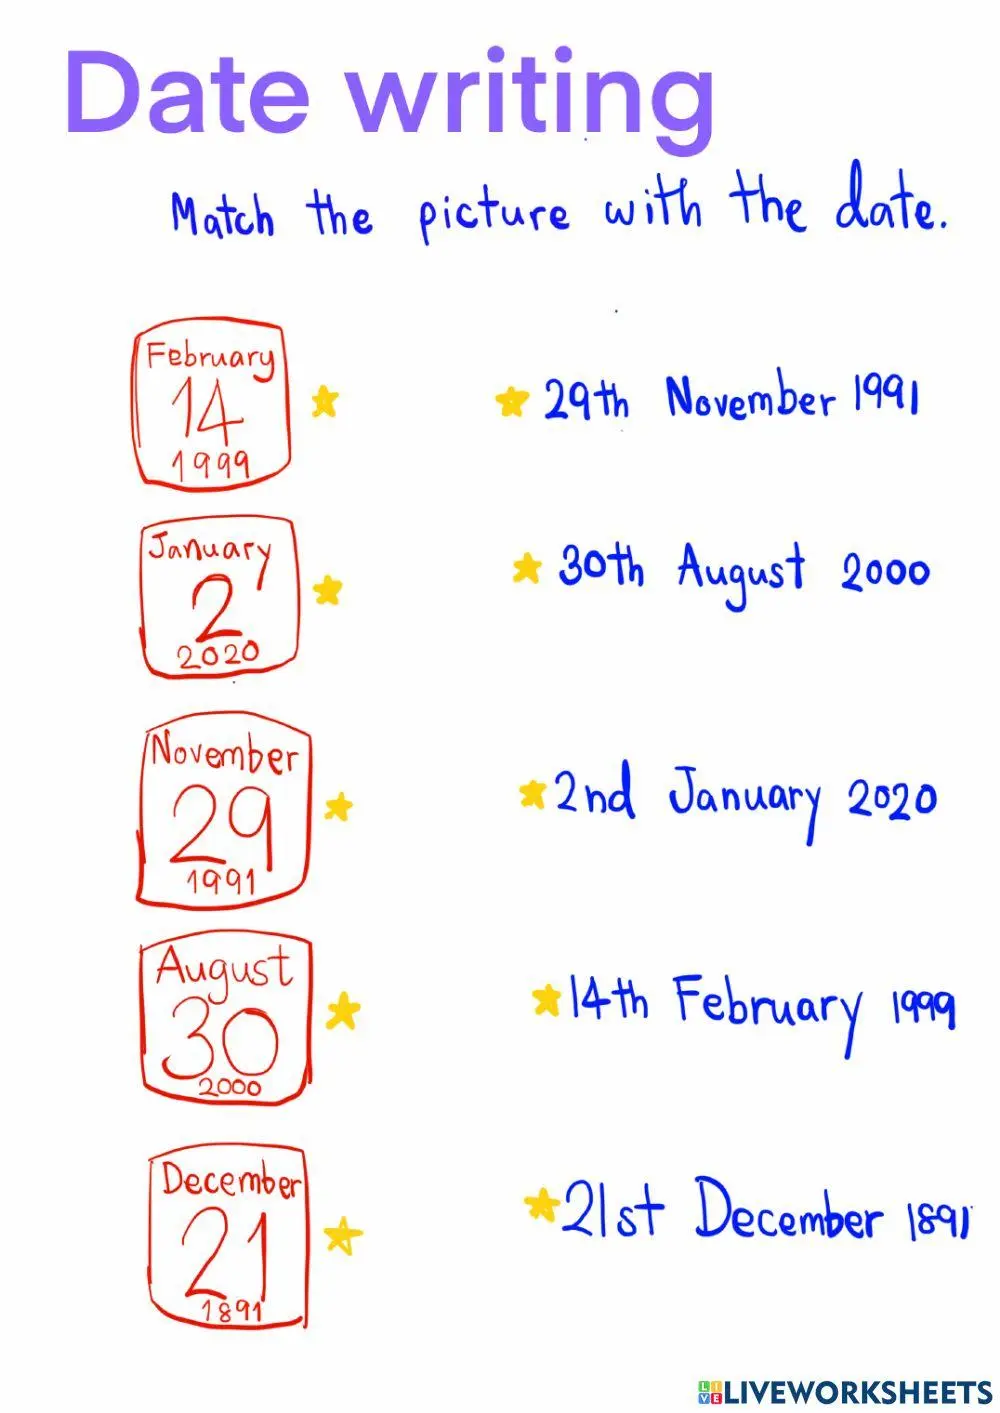 Date writing
Match the picture with the date.
February
14
1999
29th November 1991
January
2
2020
30th August 2000
November
29
1991
2nd January 2020
August
30
2000
14th February 1999
December
21
1891
21st December 1891
LIVE LIVEWORKSHEETS